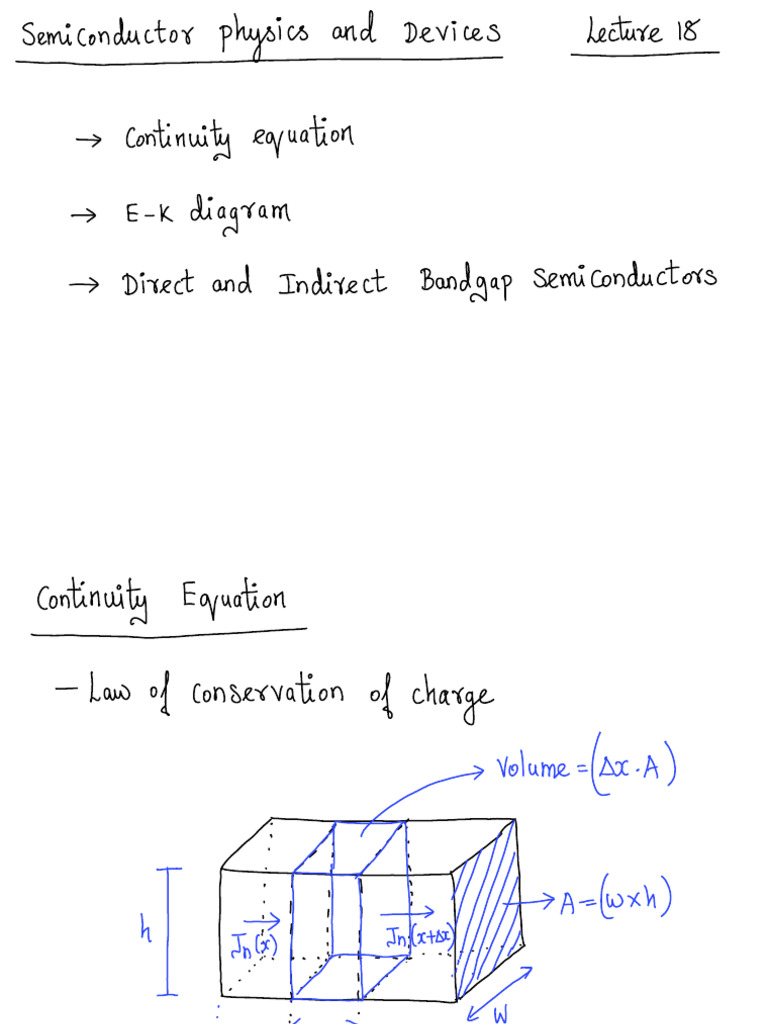 Semiconductor physics and Devices Lecture 18
→ Continuity equation
→ E-K diagram
→ Direct and Indirect Bandgap Semiconductors
Continuity Equation
- Law of conservation of charge
Volume = (Δx.A)
A = (w×h)
h
Jn(x)
Jn(x+Δx)
W